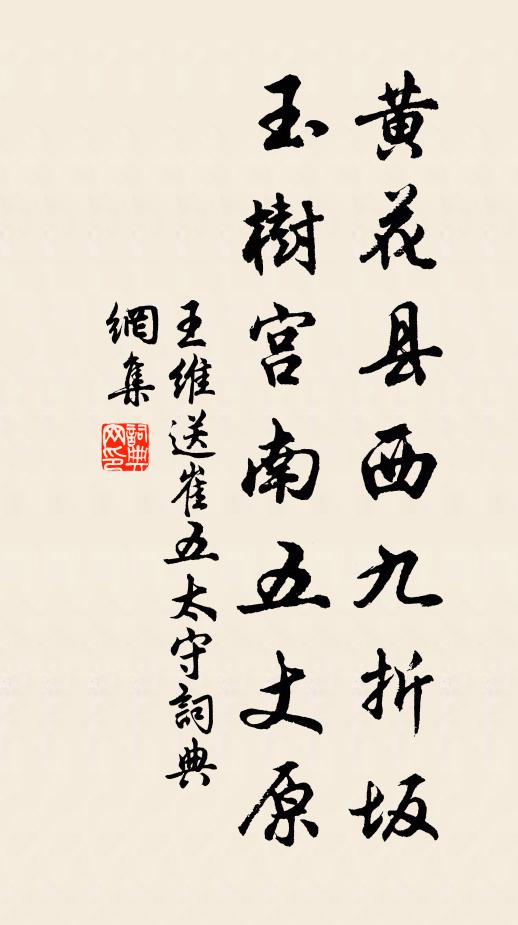 黄花县西九折坂
玉樹宫南五丈原
王維送崔五太守詞典
網集
詞典网印